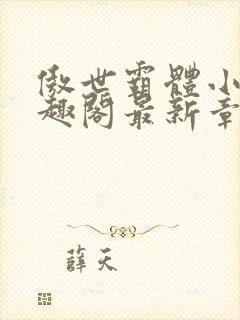 傲世霸體小
趣閣最新章
薛天